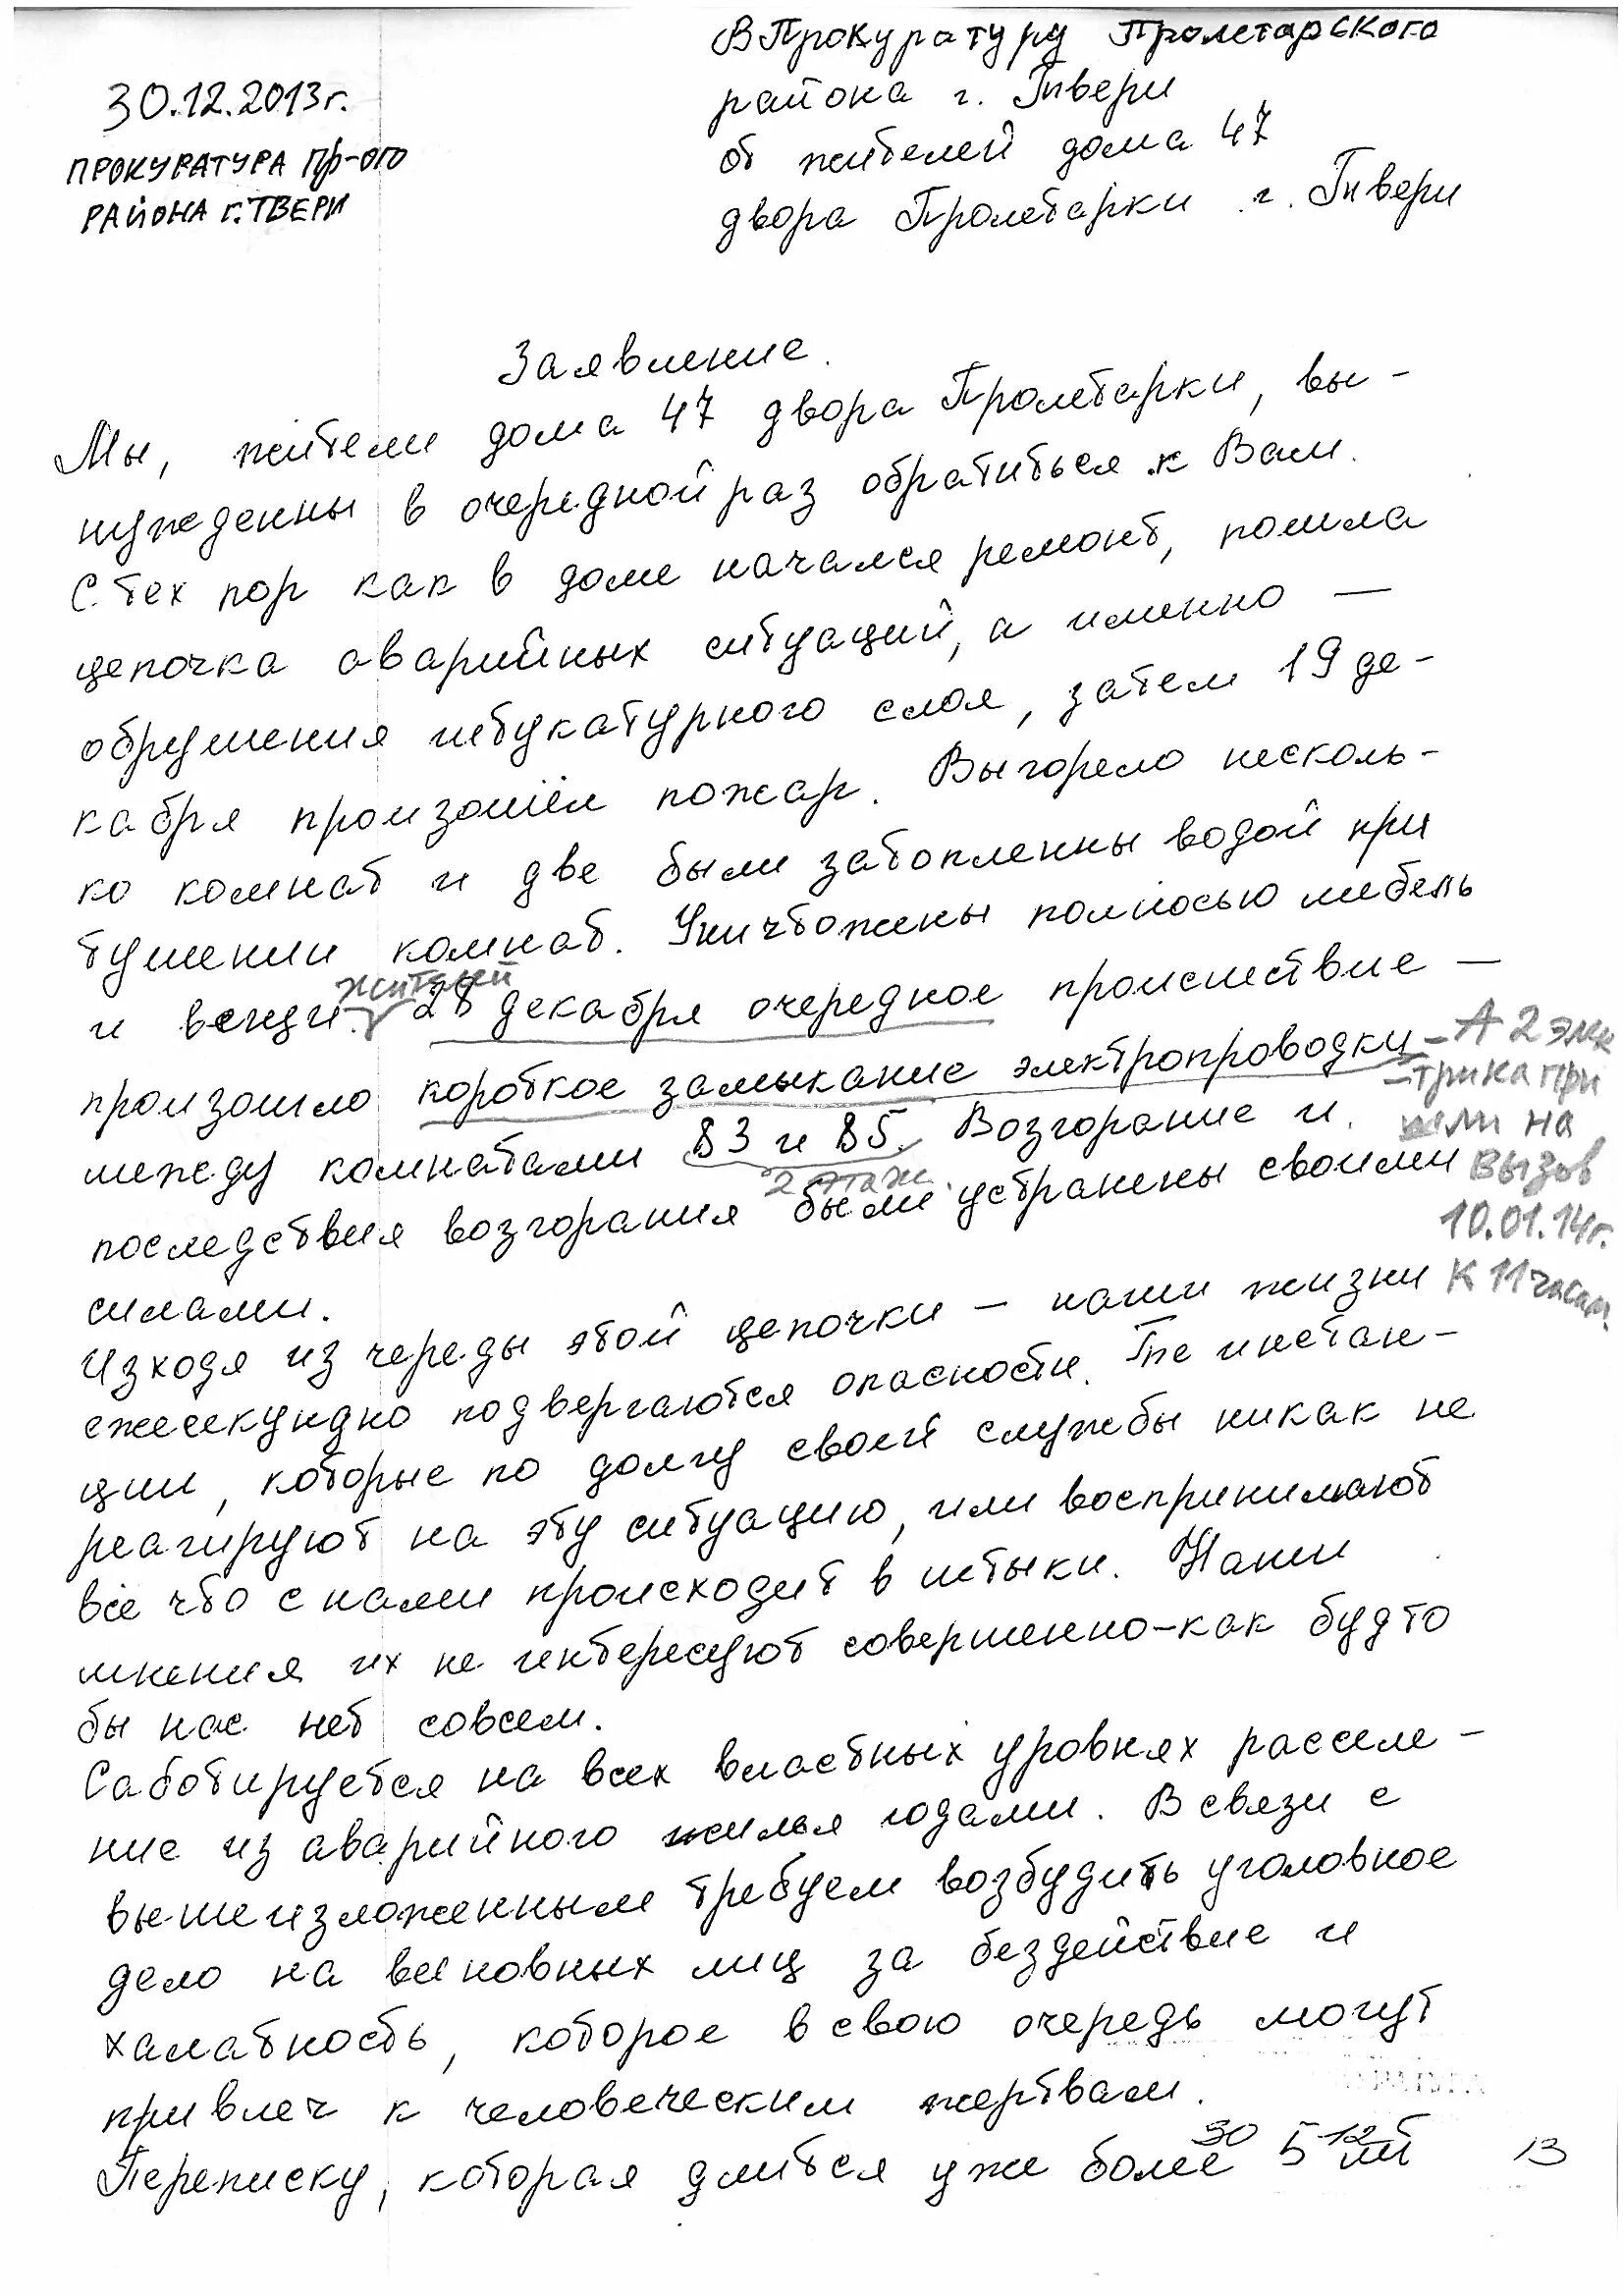 В Прокуратуру Пролетарского
района г. Твери
от жителей дома 47
двора Пролетарки г. Твери
30.12.2013г.
ПРОКУРАТУРА ПР-ОГО
РАЙОНА Г. ТВЕРИ
Заявление.
Мы, жители дома 47 двора Пролетарки, вы-
нужденны в очередной раз обратиться к Вам.
С тех пор как в доме начался ремонт, пошла
цепочка аварийных ситуаций, а именно —
обрушения штукатурного слоя, затем 19 де-
кабря произошёл пожар. Выгорело несколь-
ко комнат и две были затопленны водой при
тушении комнат. Уничтожены полносью мебель
жителей
и вещи. 28 декабря очередное происшествие —
произошло короткое замыкание электропроводки
между комнатами 83 и 85. Возгорание и
2 этаж.
последствия возгорания были устранены своими
силами.
- А 2 элек
- трика при
шли на
вызов
10.01.14г.
к 11 часам
Изходя из череды этой цепочки — наши жизни
ежесекундно подвергаются опасности. Те инстан-
ции, которые по долгу своей службы никак не
реагируют на эту ситуацию, или воспринимают
всё что с нами происходит в штыки. Наши
мнения их не интересуют совершенно-как будто
бы нас нет совсем.
Саботируется на всех властных уровнях расселе-
ние из аварийного жилья годами. В связи с
вышеизложенным требуем возбудить уголовное
дело на виновных лиц за бездействие и
халатность, которое в свою очередь могут
привлеч к человеческим жертвам.
Переписку, которая длится уже более 5 лет
30 12 13